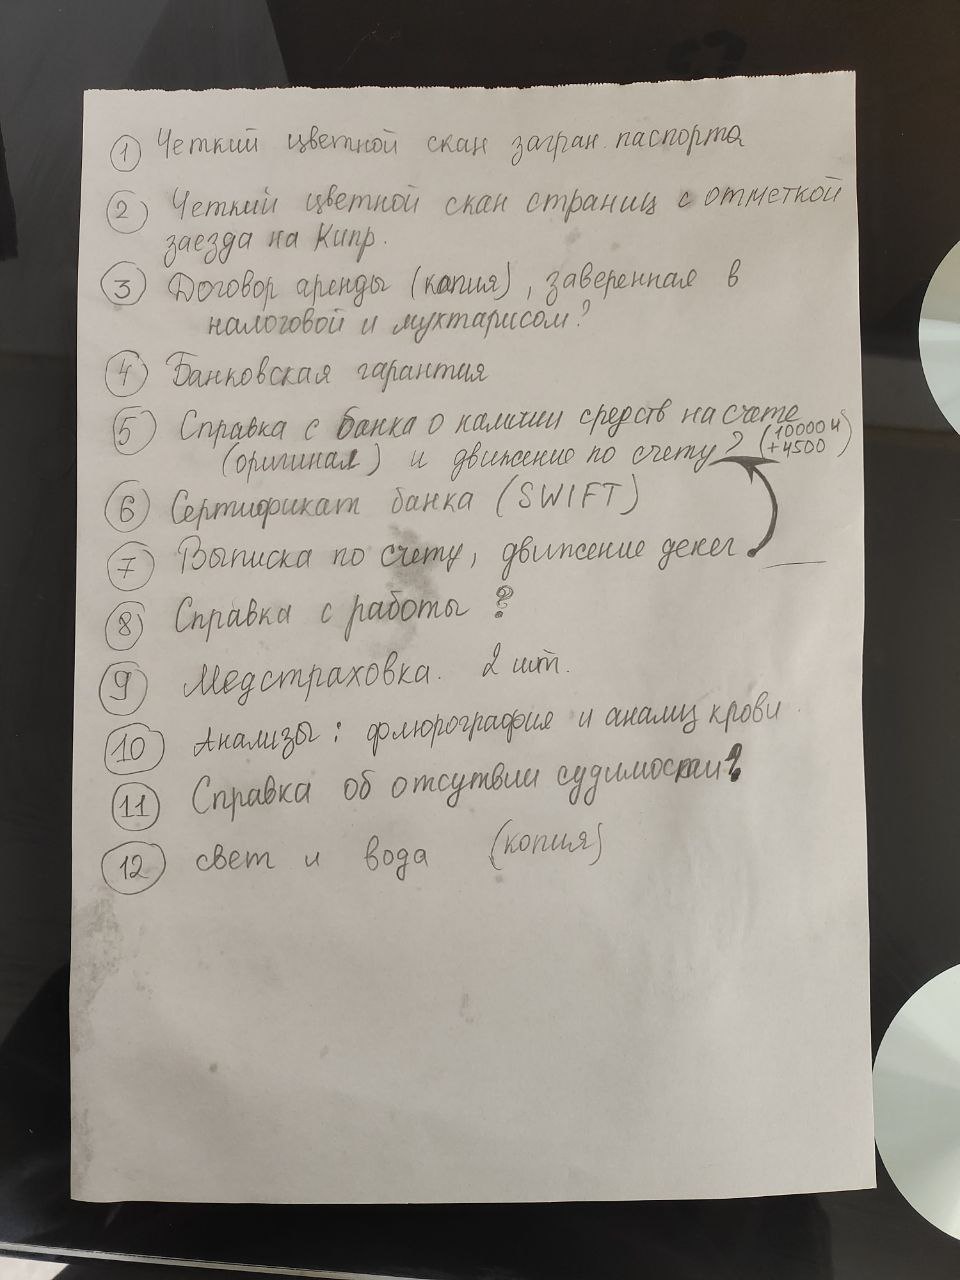 1 Четкий цветной скан загран. паспорта
2 Четкий цветной скан страниц с отметкой
заезда на Кипр.
3 Договор аренды (копия), заверенная в
налоговой и мухтарисом?
4 Банковская гарантия
5 Справка с банка о наличии средств на счете
(оригинал) и движение по счету? (10000 и
+4500)
6 Сертификат банка (SWIFT)
7 Выписка по счету, движение денег
8 Справка с работы ?
9 Медстраховка. 2 шт.
10 Анализы: флюрография и анализ крови.
11 Справка об отсутвии судимости?
12 свет и вода (копия)